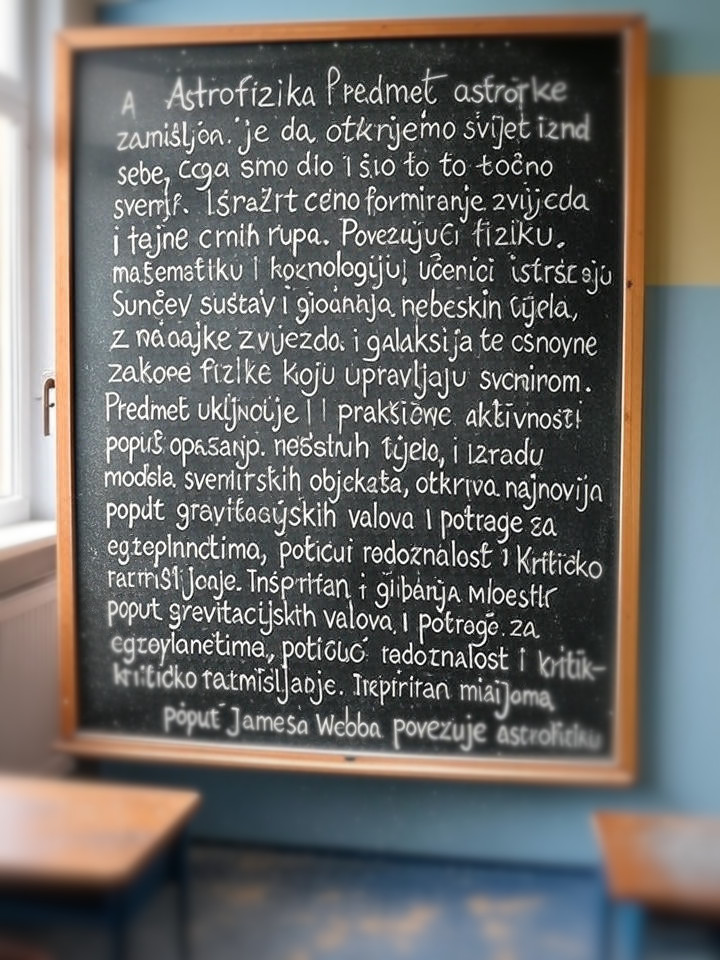 A Astrofizika Predmet astrofke
zamišljon. je da otkrijemo svijet iznd
sebe, čga smo dio i što to to točno
svemir. Išražrt ceno formiranje zvijeda
i tajne crnih rupa. Povezujući fiziku.
matematiku i koznologiju, učenici istršćaju
Sunčev sustav i gioanhja nebeskin tijela,
z náoajke zvijezda. i galaksija te osnovne
zakone fizike koju upravljaju svcnirom.
Predmet ukljnouje i i prakšičwe aktivnosti
popuš opašanjp. nesstruh tijelo, i izradu
modsla svemirskih objekata, otkriva najnovija
poput gravitacijskih valova i potrage za
egzeplnnctima, potičui radoznalost i kritičko
ratmišljoaje. Inspiritan i glibanja mloestir
poput grevitacijskih valova i potrege. za
egzoylanetima, potičuć radoznalost i kritik-
kritičko ratmisljanje. Irepriritan miaijoma
poput Jamesa Webba povezuje astrofiziku